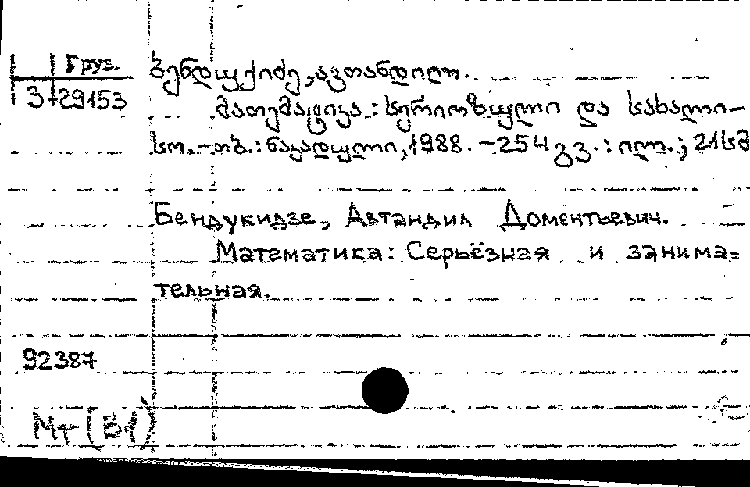 Груз.
3-29153
ბენდუქიძე, ავთანდილ.
მათემატიკა : სერიოზული და სახალი-
სო. - თბ. : ნაკადული, 1988. - 254 გვ. : ილ. ; 21 სმ
Бендукидзе, Автандил Доментьевич.
Математика: Серьёзная и занима=
тельная.
92387
Мт (В1)